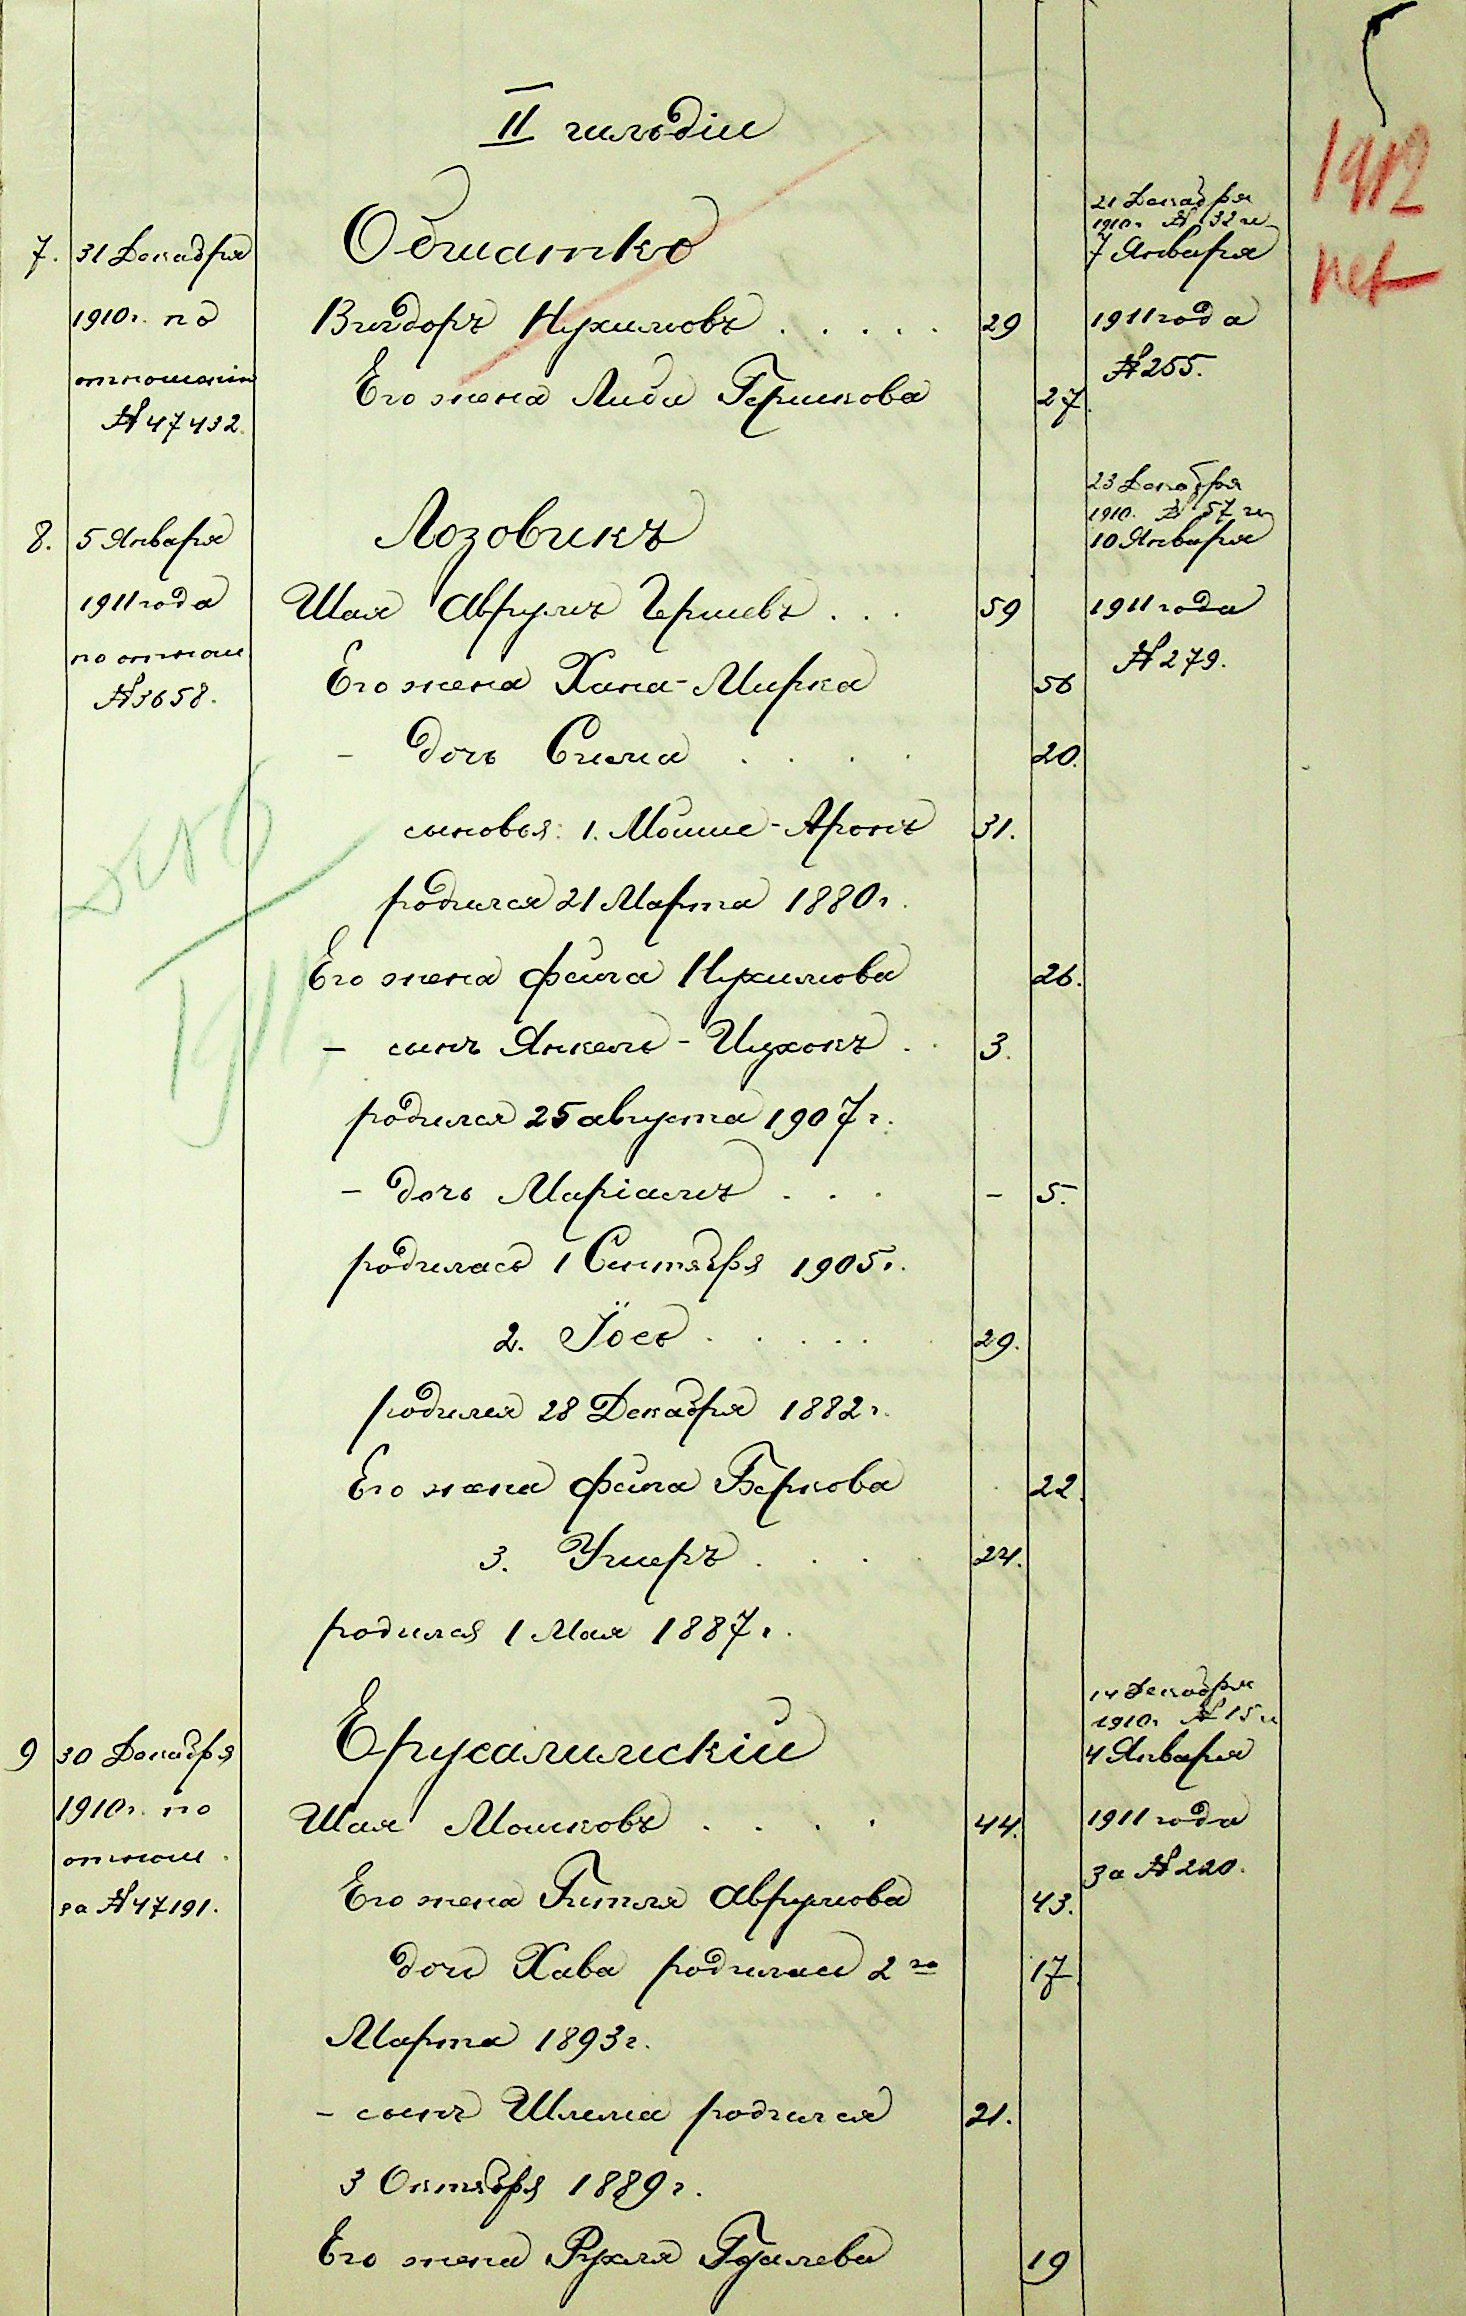 II гильдіи
1912
нет
7. 31 Декабря
1910г. по
отношенію
№ 47432.
Обшатко
Вигдоръ Нухимовъ . . . . . 29
Его жена Либа Гершкова 27.
21 Декабря
1910г № 32
7 Января
1911 года
№ 255.
8. 5 Января
1911 года
по отнош
№ 3658.
Лозовикъ
Шая Аврумъ Гершевъ . . . 59
Его жена Хана-Мирка 56
- дочь Сима . . . . 20.
сыновья: 1. Мошше-Аронъ 31.
родился 21 Марта 1880г.
Его жена Фейга Нухимова 26.
- сынъ Янкель-Ицхокъ . . 3.
родился 25 августа 1907г.
- дочь Маріамъ . . . - 5.
родилась 1 Сентября 1905г.
2. Іось . . . . . 29.
родился 28 Декабря 1882г.
Его жена Фейга Беркова 22.
3. Ушеръ . . . . 24.
родился 1 Мая 1887г.
23 Декабря
1910. № 57
10 Января
1911 года
№ 279.
1911
9 30 Декабря
1910г. по
отнош.
за № 47191.
Ерусалимскій
Шая Мошковъ . . . . 44.
Его жена Гитля Аврумова 43.
дочь Хава родилась 2го 17.
Марта 1893г.
- сынъ Шлема родился 21.
3 Октября 1889г.
Его жена Рухля Гдалева 19
14 Декабря
1910г № 15
4 Января
1911 года
За № 220.